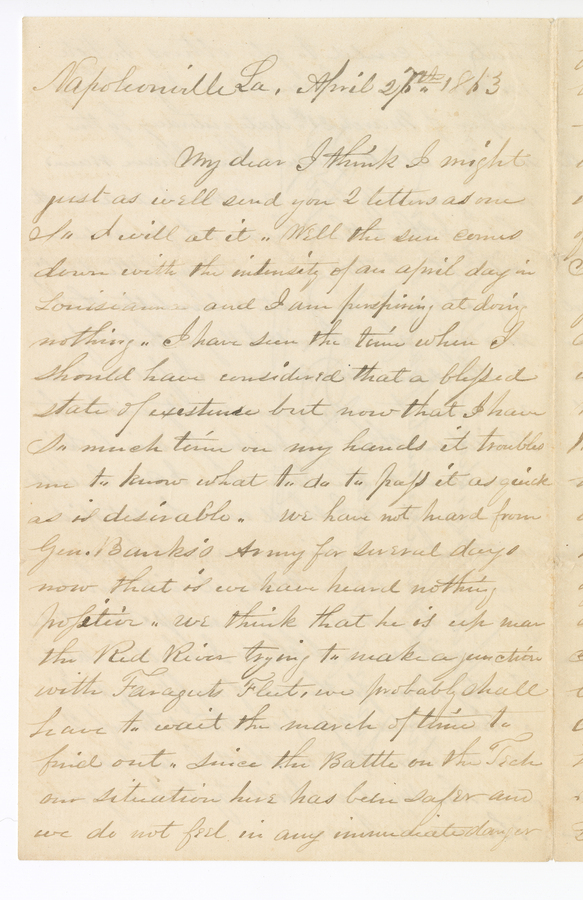 Napoleonville La. April 27th 1863
My dear I think I might
just as well send you 2 letters as one
So I will at it " Well the sun comes
down with the intensity of an april day in
Louisiana and I am perspiring at doing
nothing " I have seen the time when I
should have considered that a blessed
state of existence but now that I have
So much time on my hands it troubles
me to know what to do to pass it as quick
as is desirable " We have not heard from
Gen. Banks's Army for several days
now that is we have heard nothing
positive " We think that he is up near
the Red River trying to make a junction
with Faraguts Fleet, we probably shall
have to wait the march of time to
find out " Since the Battle on the Tech
our situation here has been safer and
we do not feel in any immediate danger